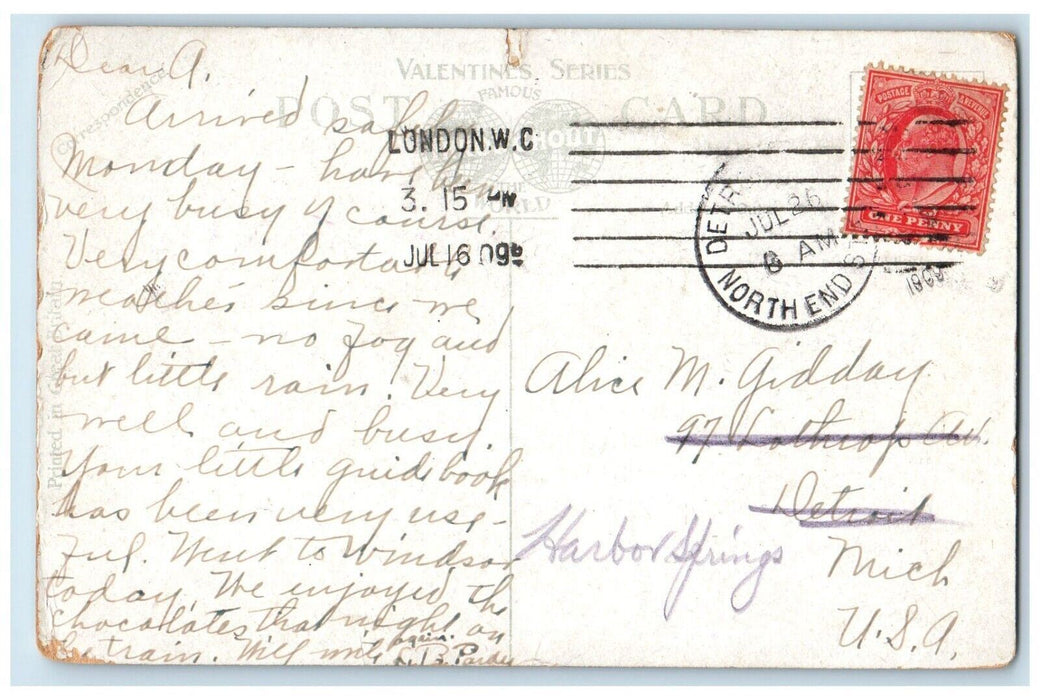 Dear A.
Arrived safely
Monday – have been
very busy of course.
Very comfortable
weather since we
came – no fog and
but little rain! Very
well and busy.
Your little guidebook
has been very use-
ful. Went to Windsor
today. We enjoyed the
chocolates that night on
the train. Will write again.
Correspondence
Printed in Great Britain
VALENTINE'S SERIES
FAMOUS
POST CARD
WORLD
LONDON.W.C
3. 15 PM
JUL 16 09
DETR
JUL 26
8 AM
NORTH END
1909
POSTAGE
ONE PENNY
Alice M. Gidday
97 Lothrop Av.
Detroit
Harbor Springs
Mich
U.S.A.